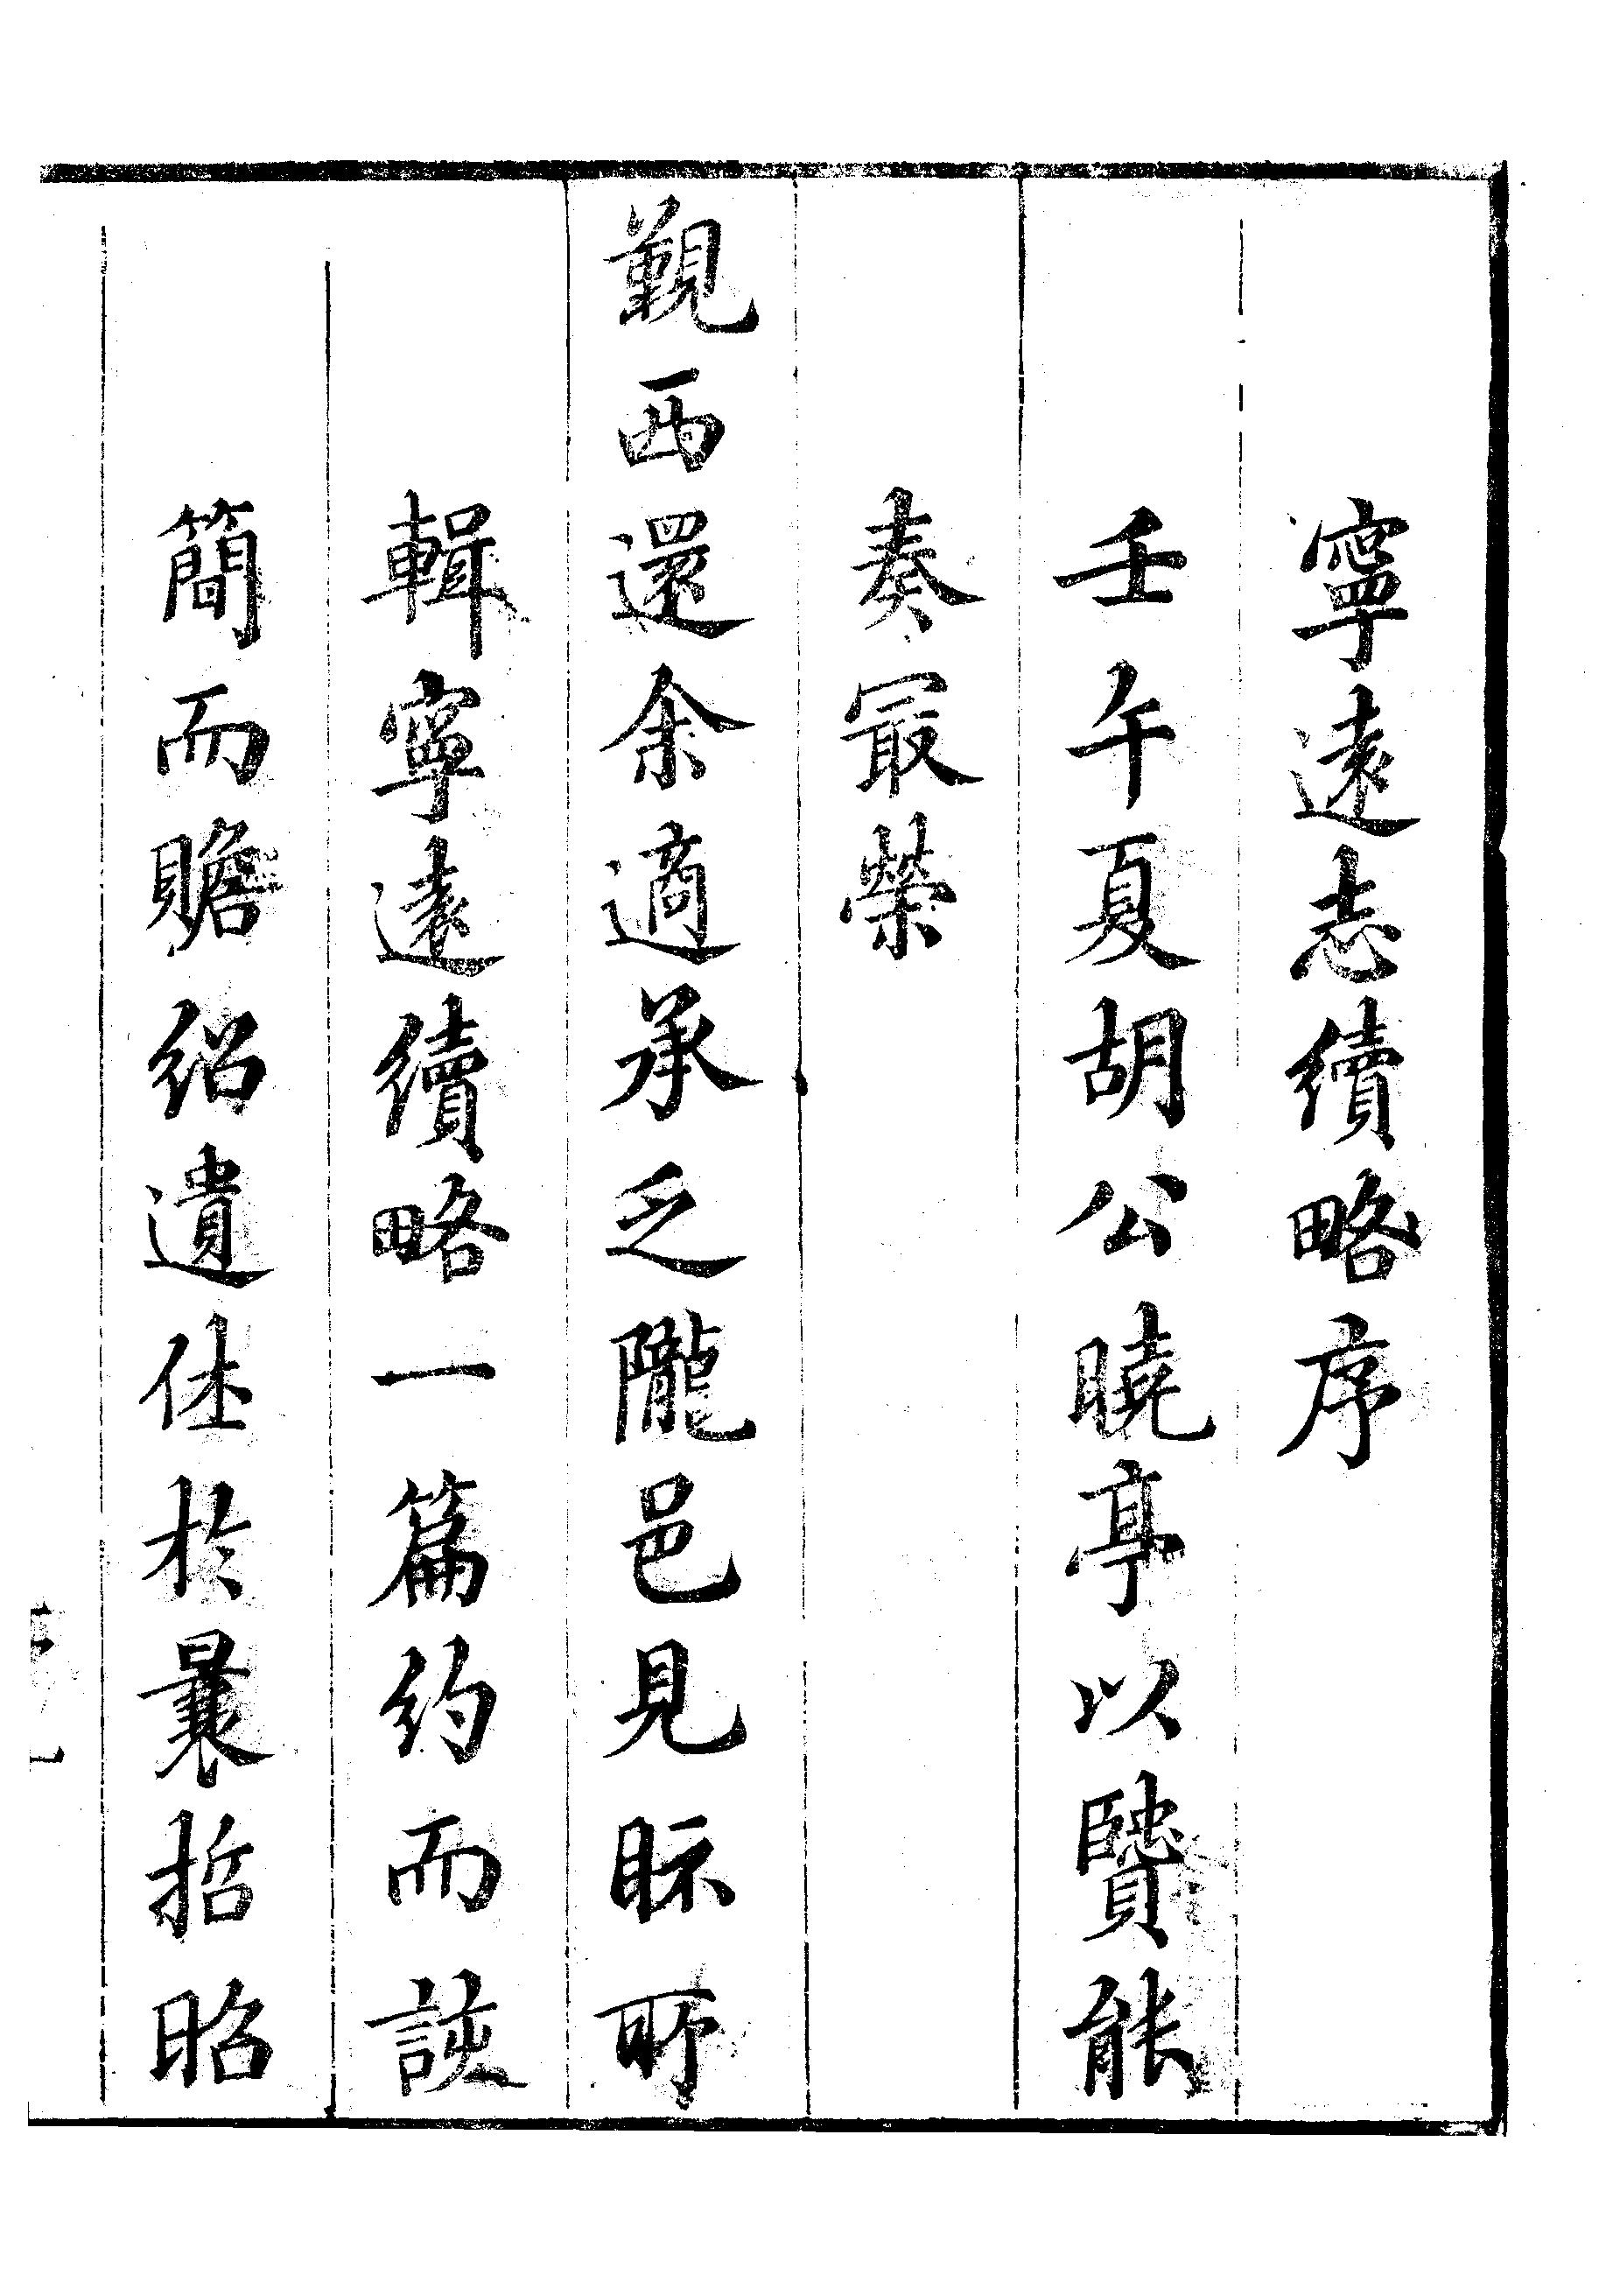 寧遠志續略序
壬午夏胡公曉亭以賢能
奏最榮
覲西還余適承乏隴邑見眎所
輯寧遠續略一篇約而該
簡而贍紹遺休於曩哲昭